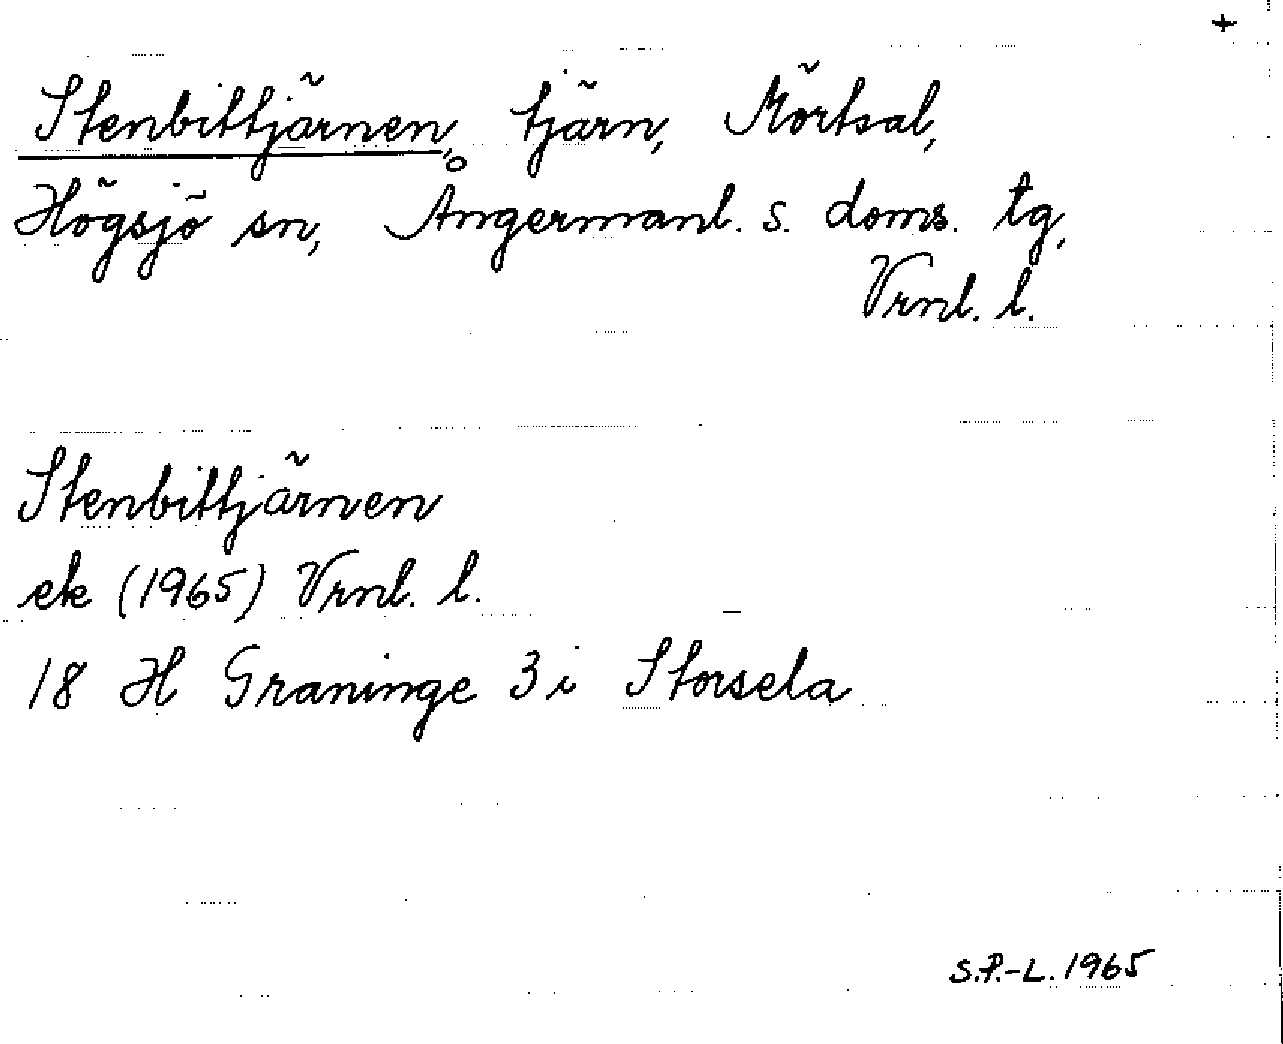 +
Stenbittjärnen, tjärn, Mörtsal,
Högsjö sn, Ångermanl. s. doms. tg,
Vrnl. l.
Stenbittjärnen
ek (1965) Vrnl. l.
18 H Graninge 3 i Storsela
S.P.-L. 1965